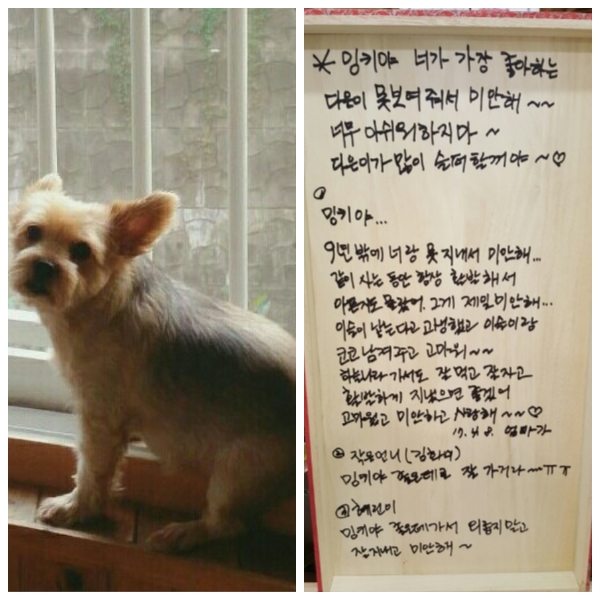 * 밍키야 너가 가장 좋아하는
다은이 못보여줘서 미안해 ~~
너무 아쉬워하지마 ~
다은이가 많이 슬퍼할꺼야 ~♡
①
밍키야...
9년 밖에 너랑 못 지내서 미안해...
같이 사는 동안 항상 활발해서
아픈지도 몰랐어. 그게 제일 미안해...
이슬이 낳는다고 고생했고 이슬이랑
코코 남겨주고 고마워~~
하늘나라 가서도 잘 먹고 잘자고
활발하게 지냈으면 좋겠어
고마웠고 미안하고 사랑해~~♡
엄마가
② 작은언니
밍키야 좋은데로 잘 가거라~ㅠㅠ
③ 혜련이
밍키야 좋은데가서 아프지말고
잘지내고 미안해~